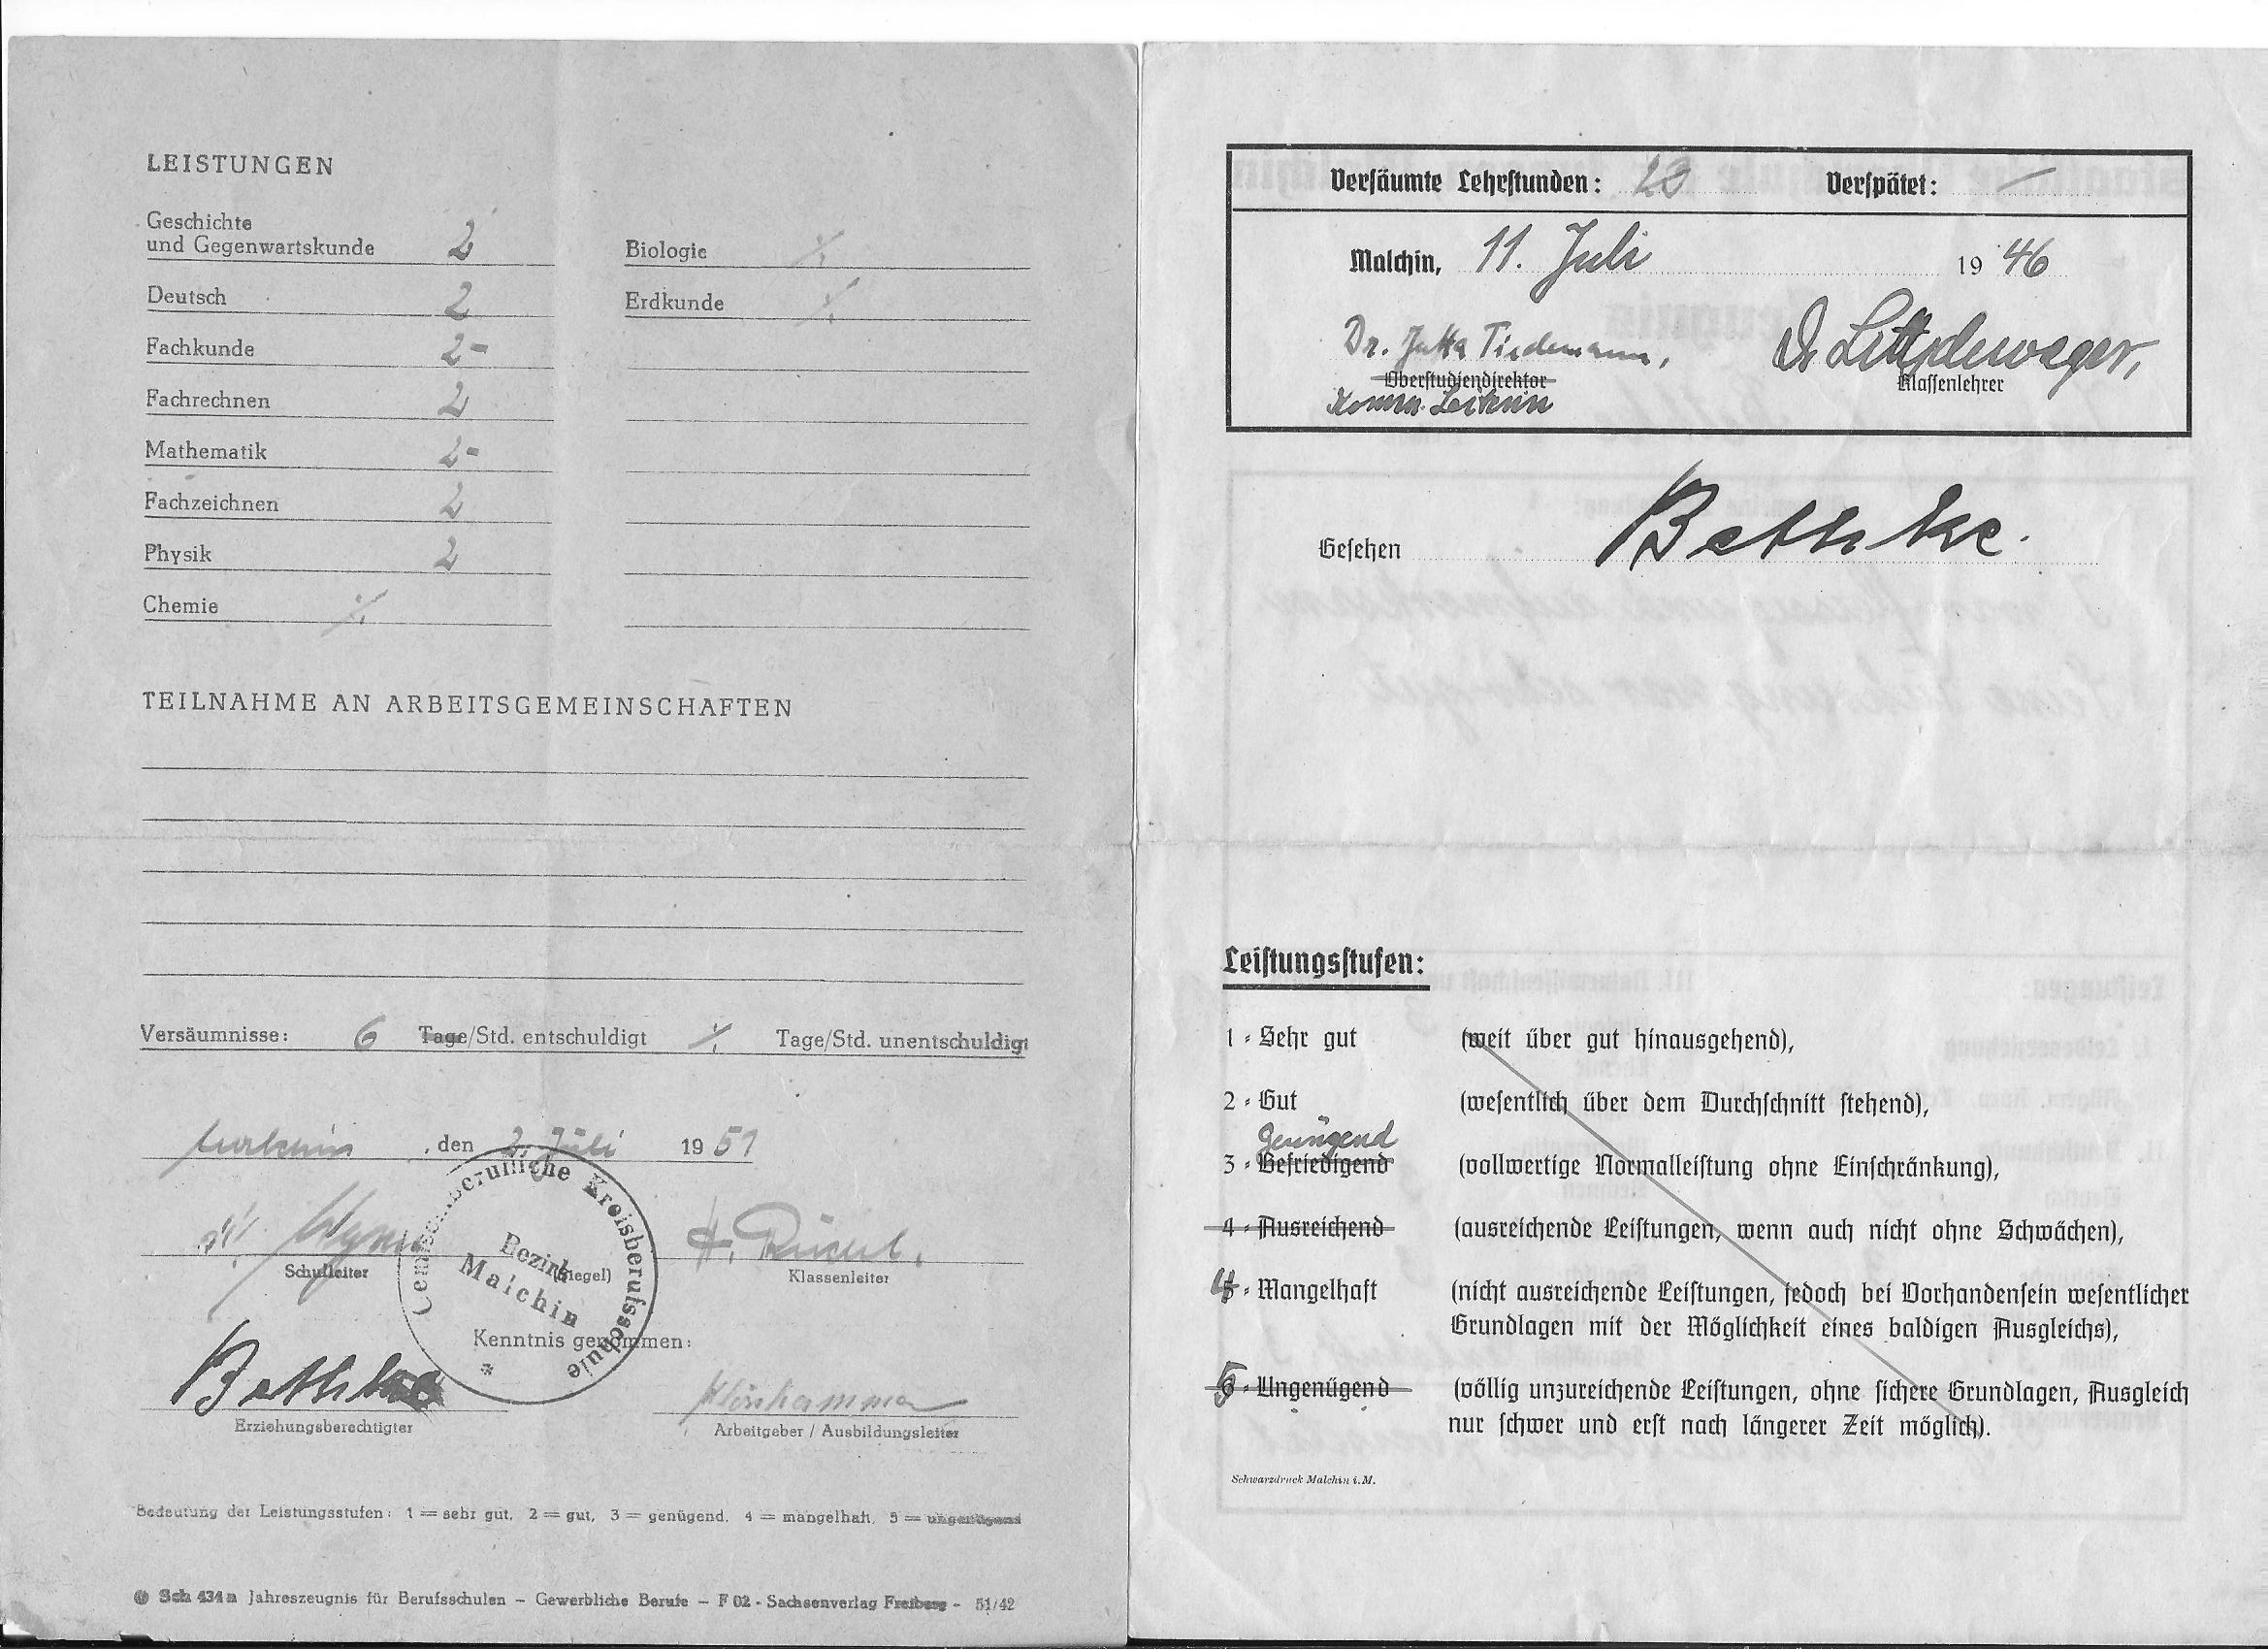 LEISTUNGEN
Geschichte
und Gegenwartskunde 2
Deutsch 2
Fachkunde 2-
Fachrechnen 2
Mathematik 2-
Fachzeichnen 2
Physik 2
Chemie ./.
Biologie ./.
Erdkunde ./.
TEILNAHME AN ARBEITSGEMEINSCHAFTEN
Versäumnisse: 6 Tage/Std. entschuldigt ./. Tage/Std. unentschuldigt
, den 2. Juli 1951
Schulleiter
(Siegel)
Klassenleiter
berufliche Kreisberufsschule
Bezirk
Malchin
Kenntnis genommen:
Bethke
Erziehungsberechtigter
Arbeitgeber / Ausbildungsleiter
Bedeutung der Leistungsstufen: 1 = sehr gut, 2 = gut, 3 = genügend, 4 = mangelhaft, 5 = ungenügend
Sch 434 a Jahreszeugnis für Berufsschulen – Gewerbliche Berufe – F 02 - Sachsenverlag Freiberg - 51/42
Verſäumte Lehrſtunden: 23 Verſpätet: —
Malchin, 11. Juli 1946
Dr. Jutta Tiedemann,
Oberſtudiendirektor
Komm. Leiterin
Klaſſenlehrer
Geſehen Bethke.
Leiſtungsſtufen:
1 - Sehr gut (weit über gut hinausgehend),
2 - Gut (weſentlich über dem Durchſchnitt ſtehend),
Genügend
3 - Befriedigend (vollwertige Normalleiſtung ohne Einſchränkung),
4 - Ausreichend (ausreichende Leiſtungen, wenn auch nicht ohne Schwächen),
4 5 - Mangelhaft (nicht ausreichende Leiſtungen, jedoch bei Vorhandenſein weſentlicher
Grundlagen mit der Möglichkeit eines baldigen Ausgleichs),
5 6 - Ungenügend (völlig unzureichende Leiſtungen, ohne ſichere Grundlagen, Ausgleich
nur ſchwer und erſt nach längerer Zeit möglich).
Schwarzdruck Malchin i. M.